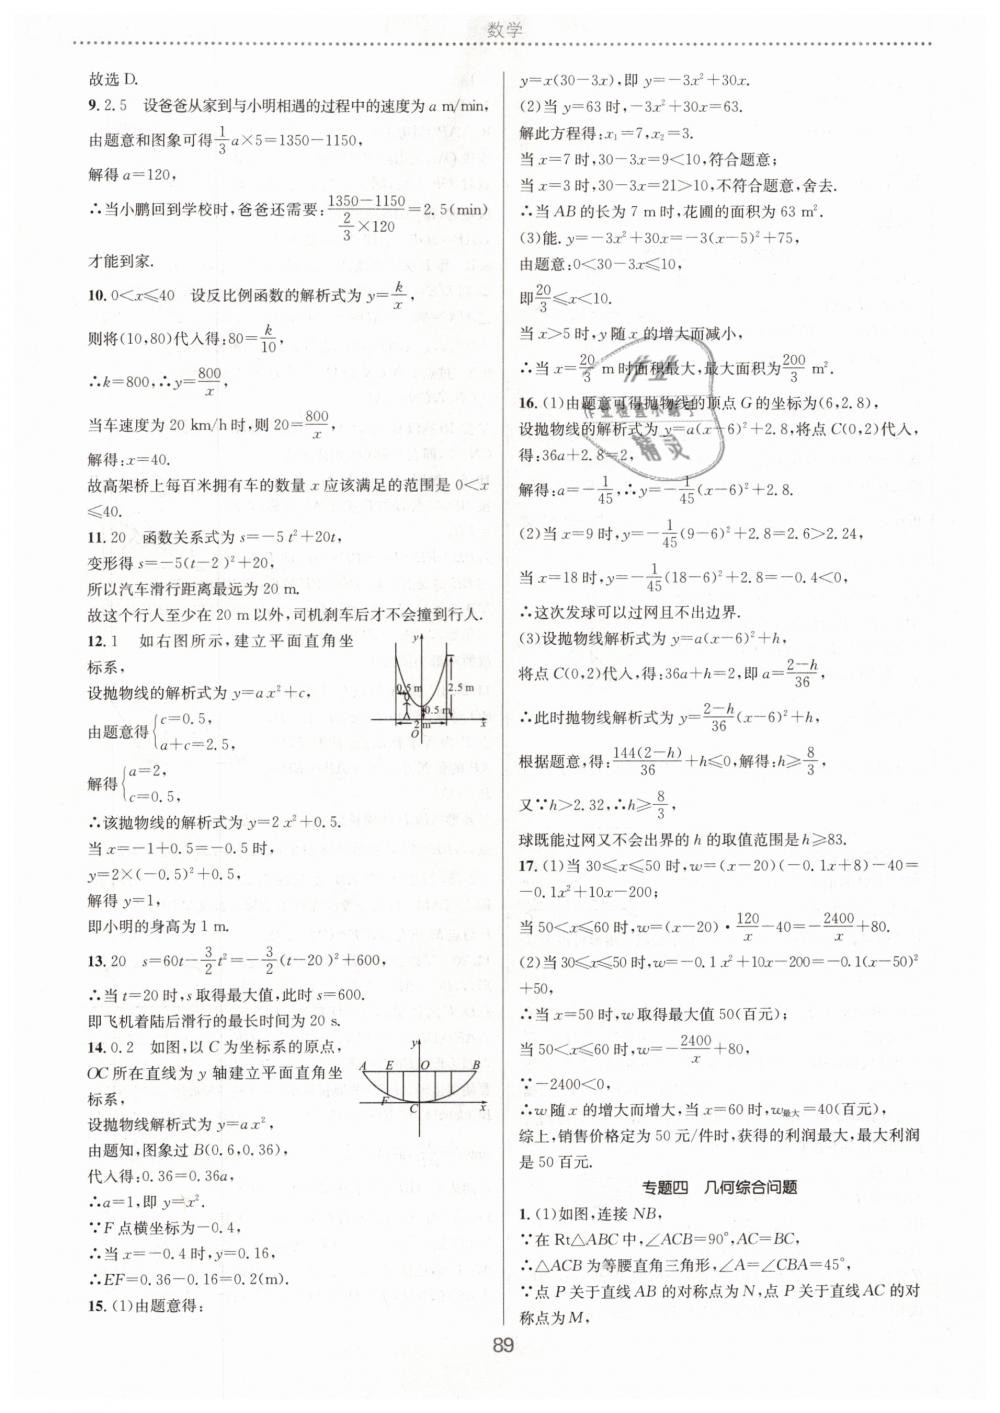 数学
故选 D.
9. 2.5 设爸爸从家到与小明相遇的过程中的速度为 a m/min,
由题意和图象可得 1/3 a×5=1350−1150,
解得 a=120,
∴当小鹏回到学校时,爸爸还需要: (1350−1150)/(2/3×120)=2.5(min)
才能到家.
10. 0<x≤40 设反比例函数的解析式为 y=k/x,
则将(10,80)代入得:80=k/10,
∴k=800,∴y=800/x,
当车速度为 20 km/h时,则 20=800/x,
解得:x=40.
故高架桥上每百米拥有车的数量 x 应该满足的范围是 0<x
≤40.
11. 20 函数关系式为 s=−5t²+20t,
变形得 s=−5(t−2)²+20,
所以汽车滑行距离最远为 20 m.
故这个行人至少在 20 m 以外,司机刹车后才不会撞到行人.
12. 1 如右图所示,建立平面直角坐
标系,
设抛物线的解析式为 y=ax²+c,
由题意得{c=0.5,
a+c=2.5,
解得{a=2,
c=0.5,
y
0.5 m
2.5 m
0.5 m
2 m
O
x
∴该抛物线的解析式为 y=2x²+0.5.
当 x=−1+0.5=−0.5 时,
y=2×(−0.5)²+0.5,
解得 y=1,
即小明的身高为 1 m.
13. 20 s=60t−3/2 t²=−3/2(t−20)²+600,
∴当 t=20 时,s 取得最大值,此时 s=600.
即飞机着陆后滑行的最长时间为 20 s.
14. 0.2 如图,以 C 为坐标系的原点,
OC 所在直线为 y 轴建立平面直角坐
标系,
y
A E O B
F
C
x
设抛物线解析式为 y=ax²,
由题知,图象过 B(0.6,0.36),
代入得:0.36=0.36a,
∴a=1,即 y=x².
∵F 点横坐标为−0.4,
∴当 x=−0.4 时,y=0.16,
∴EF=0.36−0.16=0.2(m).
15. (1)由题意得:
y=x(30−3x),即 y=−3x²+30x.
(2)当 y=63 时,−3x²+30x=63.
解此方程得:x₁=7,x₂=3.
当 x=7 时,30−3x=9<10,符合题意;
当 x=3 时,30−3x=21>10,不符合题意,舍去.
∴当 AB 的长为 7 m 时,花圃的面积为 63 m².
(3)能. y=−3x²+30x=−3(x−5)²+75,
由题意:0<30−3x≤10,
即 20/3≤x<10.
当 x>5 时,y 随 x 的增大而减小,
∴当 x=20/3 m 时面积最大,最大面积为 200/3 m².
16. (1)由题意可得抛物线的顶点 G 的坐标为(6,2.8),
设抛物线的解析式为 y=a(x−6)²+2.8,将点 C(0,2)代入,
得:36a+2.8=2,
解得:a=−1/45,∴y=−1/45(x−6)²+2.8.
(2)当 x=9 时,y=−1/45(9−6)²+2.8=2.6>2.24,
当 x=18 时,y=−1/45(18−6)²+2.8=−0.4<0,
∴这次发球可以过网且不出边界.
(3)设抛物线解析式为 y=a(x−6)²+h,
将点 C(0,2)代入,得:36a+h=2,即 a=(2−h)/36,
∴此时抛物线解析式为 y=(2−h)/36(x−6)²+h,
根据题意,得: 144(2−h)/36+h≤0,解得:h≥8/3,
又∵h>2.32,∴h≥8/3,
球既能过网又不会出界的 h 的取值范围是 h≥83.
17. (1)当 30≤x≤50 时,w=(x−20)(−0.1x+8)−40=
−0.1x²+10x−200;
当 50<x≤60 时,w=(x−20)·120/x−40=−2400/x+80.
(2)当 30≤x≤50 时,w=−0.1x²+10x−200=−0.1(x−50)²
+50,
∴当 x=50 时,w 取得最大值 50(百元);
当 50<x≤60 时,w=−2400/x+80,
∵−2400<0,
∴w 随 x 的增大而增大,当 x=60 时,w最大=40(百元),
综上,销售价格定为 50 元/件时,获得的利润最大,最大利润
是 50 百元.
专题四 几何综合问题
1. (1)如图,连接 NB,
∵在 Rt△ABC 中,∠ACB=90°,AC=BC,
∴△ACB 为等腰直角三角形,∠A=∠CBA=45°,
∵点 P 关于直线 AB 的对称点为 N,点 P 关于直线 AC 的对
称点为 M,
作业
精灵
89